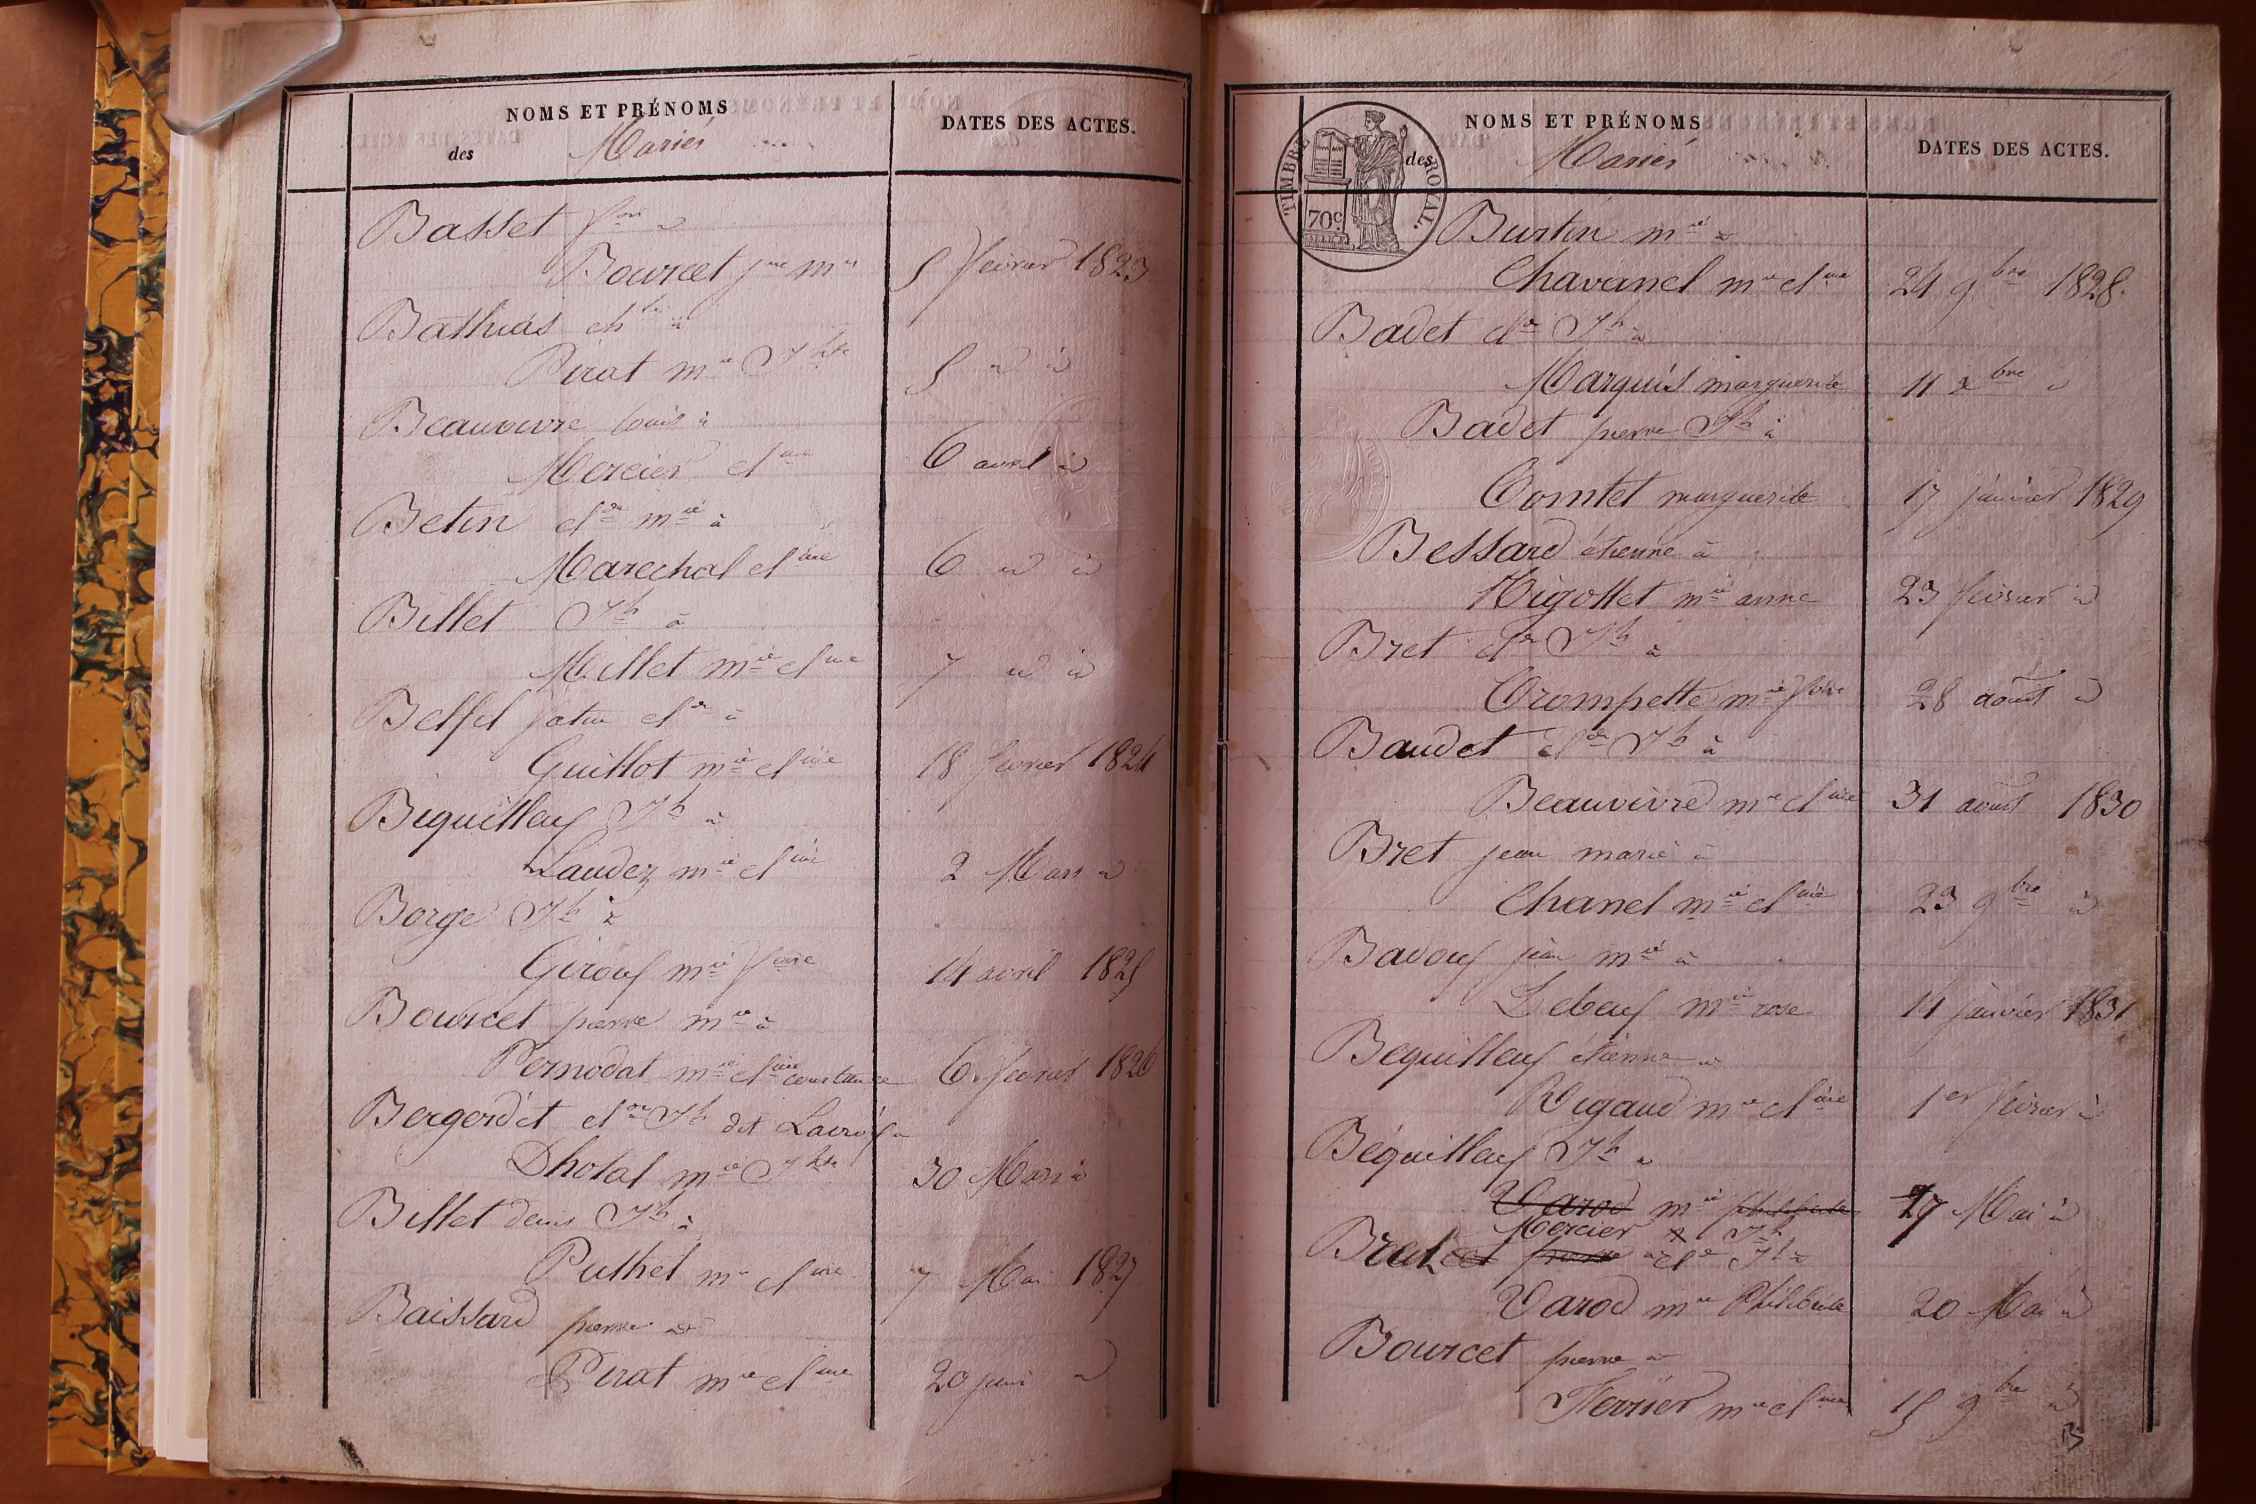 NOMS ET PRÉNOMS
des Mariés
DATES DES ACTES.
Basset à
Bourcet jne mie 5 février 1823
Bathias à
Pirat mie Jhte 5 d d
Beauvivre louis à
Mercier cline 6 avril d
Betin cl de mie à
Marechal cl ine 6 d d
Billet Jh à
Millet mie cl ine 7 d d
Belfil cl de à
Guillot mie cl ine 18 février 1824
Biquilleux Jh à
Laudez mie cl ine 2 Mars d
Borge Jh à
Giroux mie foise 14 avril 1825
Bourcet pierre mie à
Pernodat mie cl ine constance 6 février 1826
Bergerdet cl de Jh dit Lacroix à
Dhotal mie Jhte 30 Mars d
Billet denis Jh à
Puthet mie cl ine 7 Mai 1827
Baissard pierre à
Pirat mie cl ine 20 juin d
NOMS ET PRÉNOMS
des Mariés
DATES DES ACTES.
TIMBRE ROYAL.
70 c.
Burtin mie à
Chavanel mie cl ine 24 9bre 1828.
Badet cl de Jh à
Marquis marguerite 11 xbre d
Badet pierre Jh à
Comtet marguerite 17 janvier 1829
Bessard étienne à
Migottet mie anne 23 février d
Bret cl de Jh à
Crompette mie 28 août d
Baudet cl de Jh à
Beauvivre mie cl ine 31 août 1830
Bret jean marie à
Chanel mie cl ine 23 9bre d
Badoux jean mie à
Lebeuf mie rose 11 janvier 1831
Bequilleux étienne à
Rigaud mie cl ine 1er février d
Béquilleux Jh à
Varod mie philiberte 19 Mai d
Mercier Jh
Bret pierre cl de Jh à
Varod mie Philiberte 20 Mai d
Bourcet pierre à
Ferrier mie cl ine 15 9bre d
B